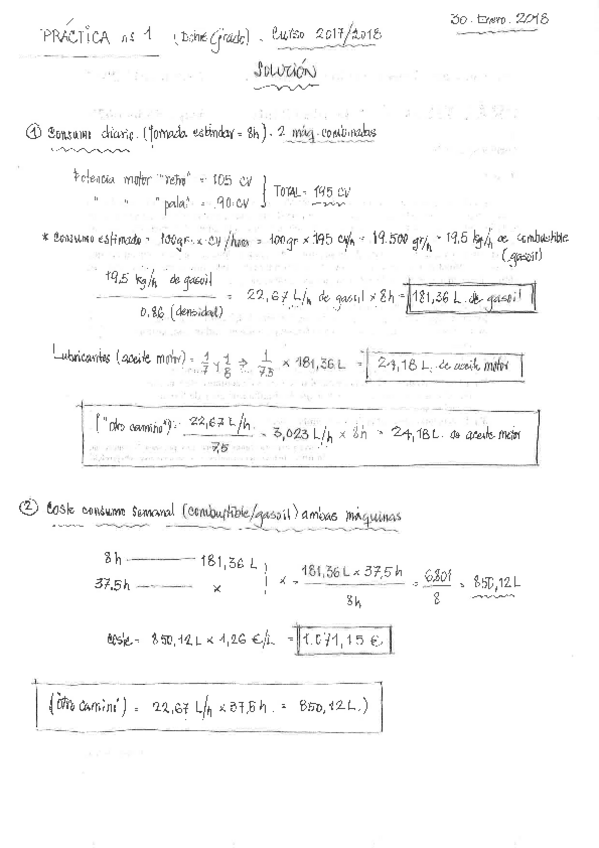 30. Enero. 2018
PRÁCTICA nº 1 (Doble Grado). Curso 2017/2018
SOLUCIÓN
① Consumo diario. (Jornada estándar = 8h). 2 máq. combinadas
Potencia motor "retro" = 105 CV
" " "pala" = 90 CV
TOTAL = 195 CV
* Consumo estimado = 100 gr. x CV/hora = 100 gr x 195 CV/h = 19.500 gr/h = 19,5 kg/h de combustible
(gasoil)
19,5 kg/h de gasoil
0.86 (densidad)
= 22,67 L/h de gasoil x 8h = 181,36 L. de gasoil
Lubricantes (aceite motor) = 1/7 y 1/8 ⇒ 1/7,5 x 181,36 L = 24,18 L. de aceite motor
("otro camino"): 22,67 L/h / 7,5 = 3,023 L/h x 8h = 24,18 L. de aceite motor
② Coste consumo semanal (combustible/gasoil) ambas máquinas
8h 181,36 L
37.5h x
x = 181,36 L x 37,5 h / 8h = 6.801 / 8 = 850,12 L
Coste = 850,12 L x 1,26 €/L = 1.071,15 €
("otro camino") = 22,67 L/h x 37,5 h. = 850,12 L.)